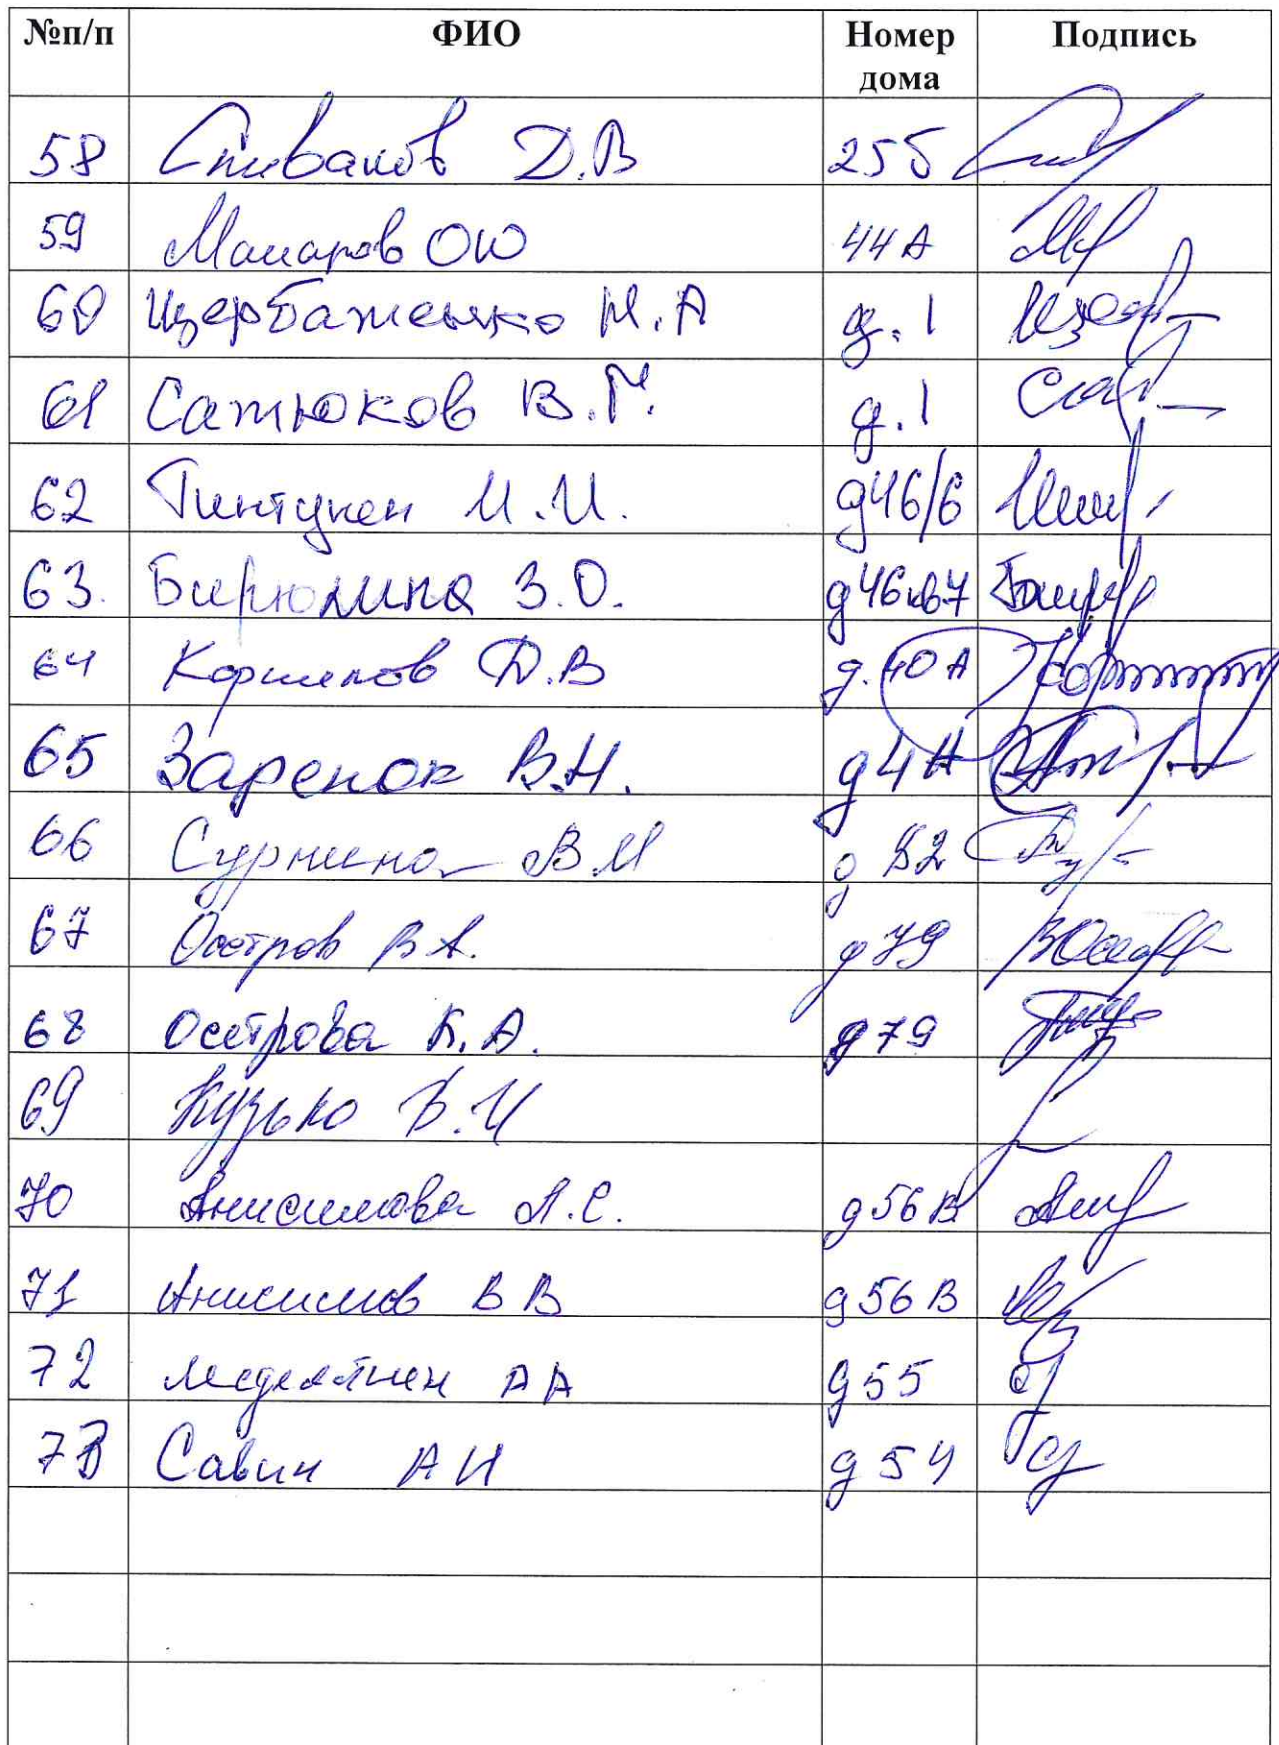 №п/п ФИО Номер дома Подпись
58 Спиваков Д.В 25Б
59 Макаров ОЮ 44А
60 Щербаженко М.А д.1
61 Сатюков В.Г. д.1
62 Пинтукен И.И. д46/6
63. Бирюлина З.О. д46кв7
64 Коршунов Д.В д.40А
65 Заренок В.Н. д4А
66 Сурнина В.М д 52
67 Осетров В А. д79
68 Осетрова К.А. д79
69 Кузько В.И
70 Анисимова А.С. д56В
71 Анисимов В В д56В
72 АА д55
73 Савин АИ д54